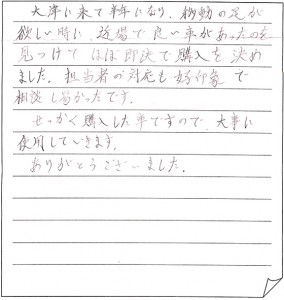 大津に来て半年になり、移動の足が
欲しい時に、近場で良い車があったのを
見つけてほぼ即決で購入を決め
ました。担当者の対応も好印象で
相談し易かったです。
せっかく購入した車ですので、大事に
使用していきます。
ありがとうございました。